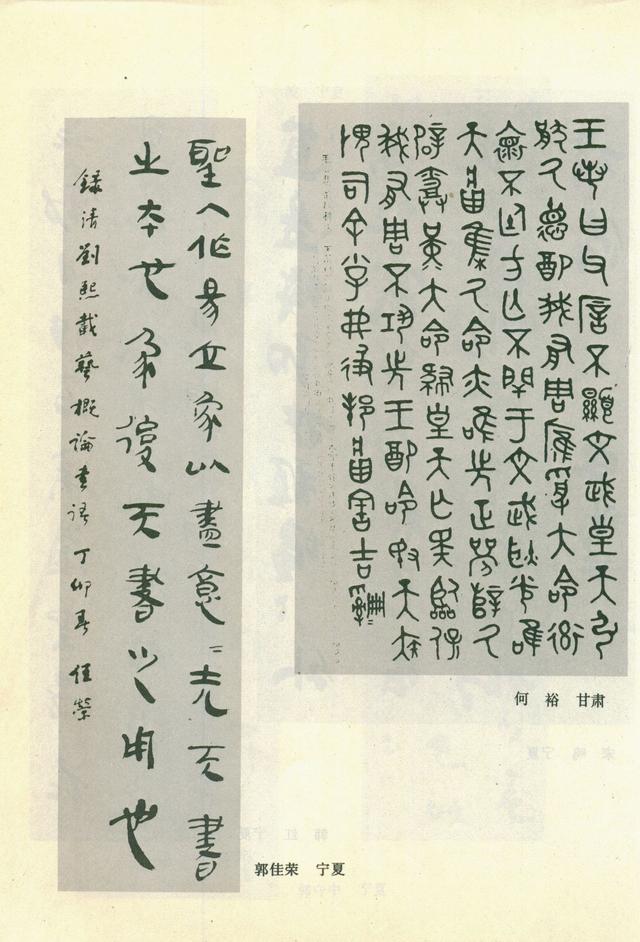 王若曰父厝不顯文武皇天弘
猒厥德配我有周膺受大命率
褱不廷方亡不閈于文武耿光唯
天將集厥命亦唯先正襄辥厥
辟堇大命肆皇天亡斁臨保
我有周不巩先王配命敃天疾
畏司余小子弗彶邦將害吉
何裕 甘肃
聖人作易立象以盡意〻先天書
之本也象後天書之用也
錄清劉熙載藝概論書語 丁卯春 佳榮
郭佳荣 宁夏